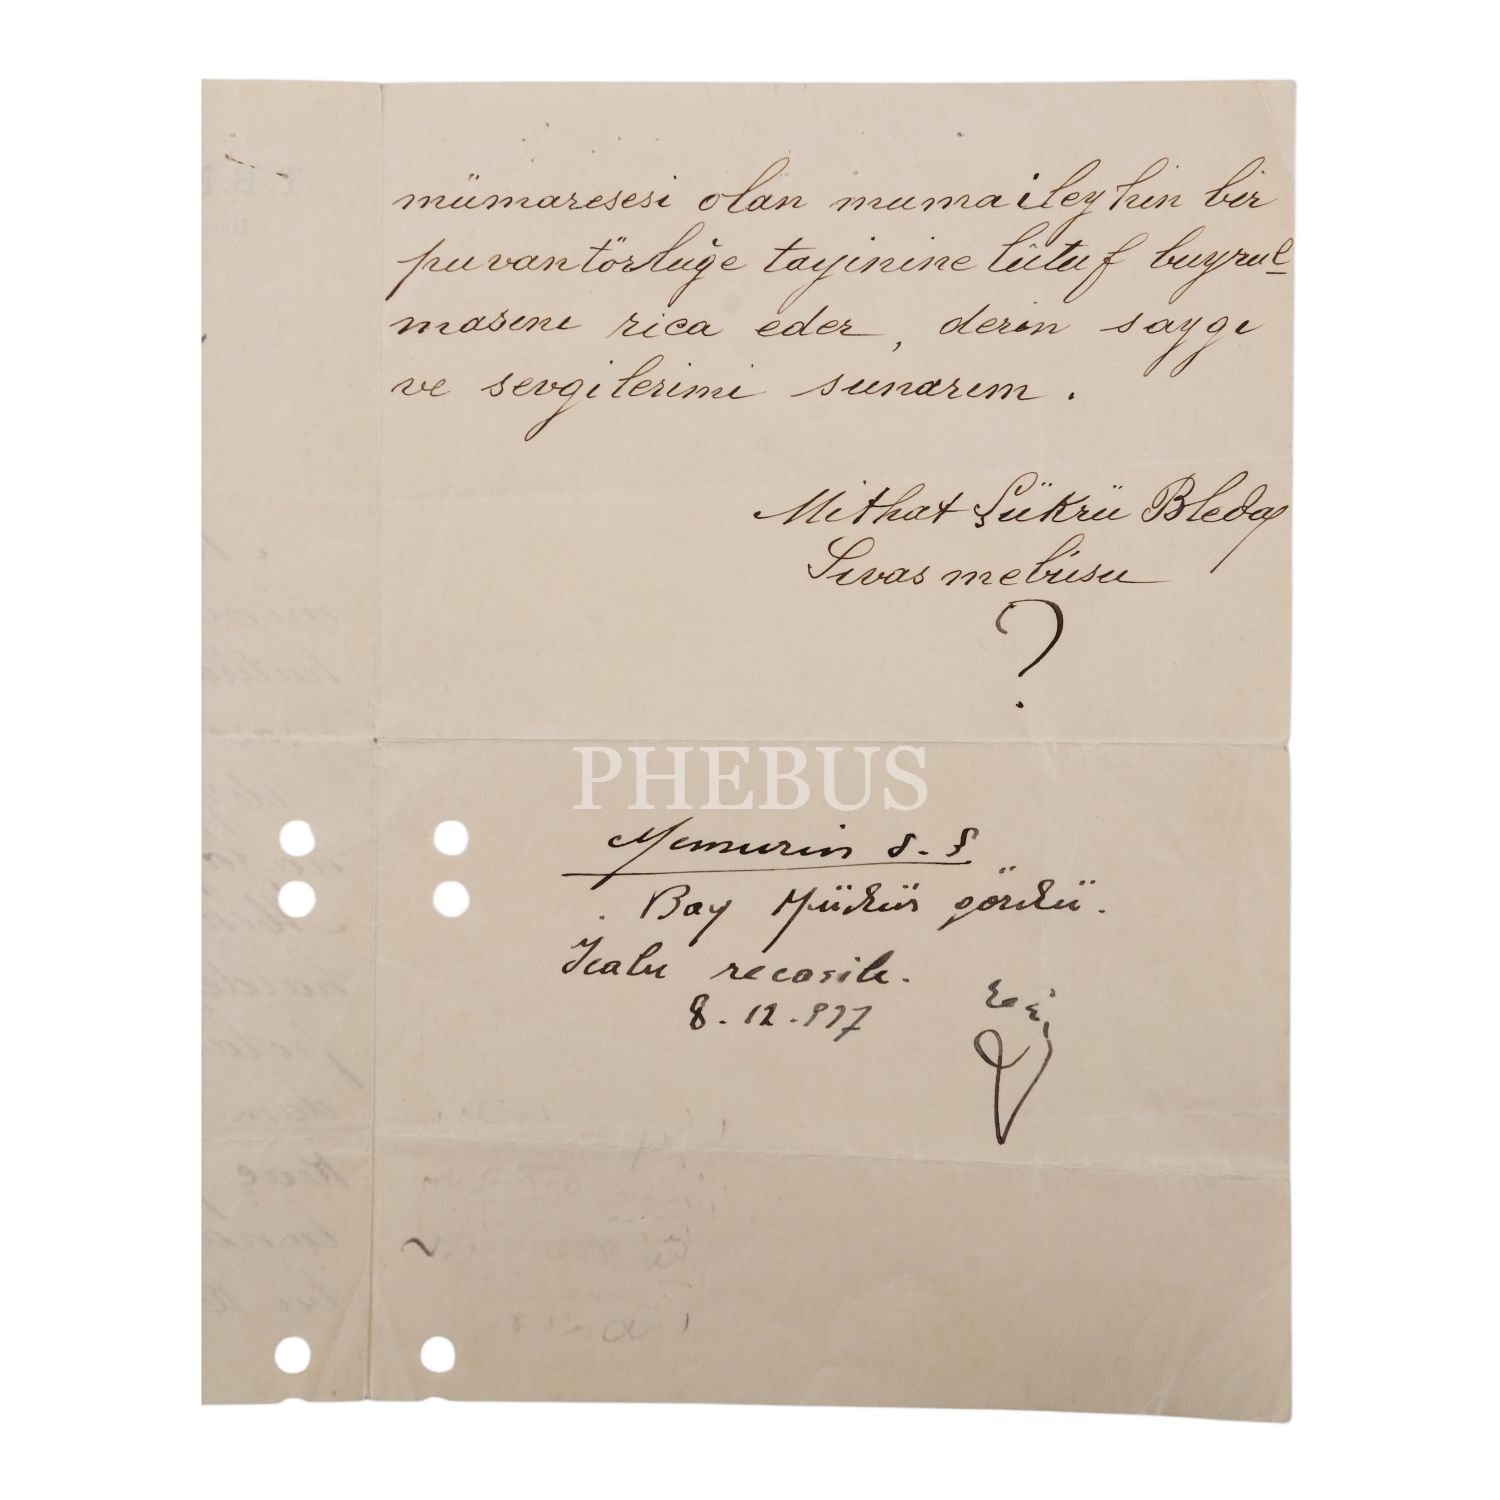 mümaresesi olan mumaileyhin bir
puvantörluğe tayinine lûtuf buyrul-
masını rica eder, derin saygı
ve sevgilerimi sunarım.
Mithat Şükrü Bleda
Sıvas mebûsu
?
PHEBUS
Memurin
Bay Müdür gördü.
Icabı ricasile.
8.12.937